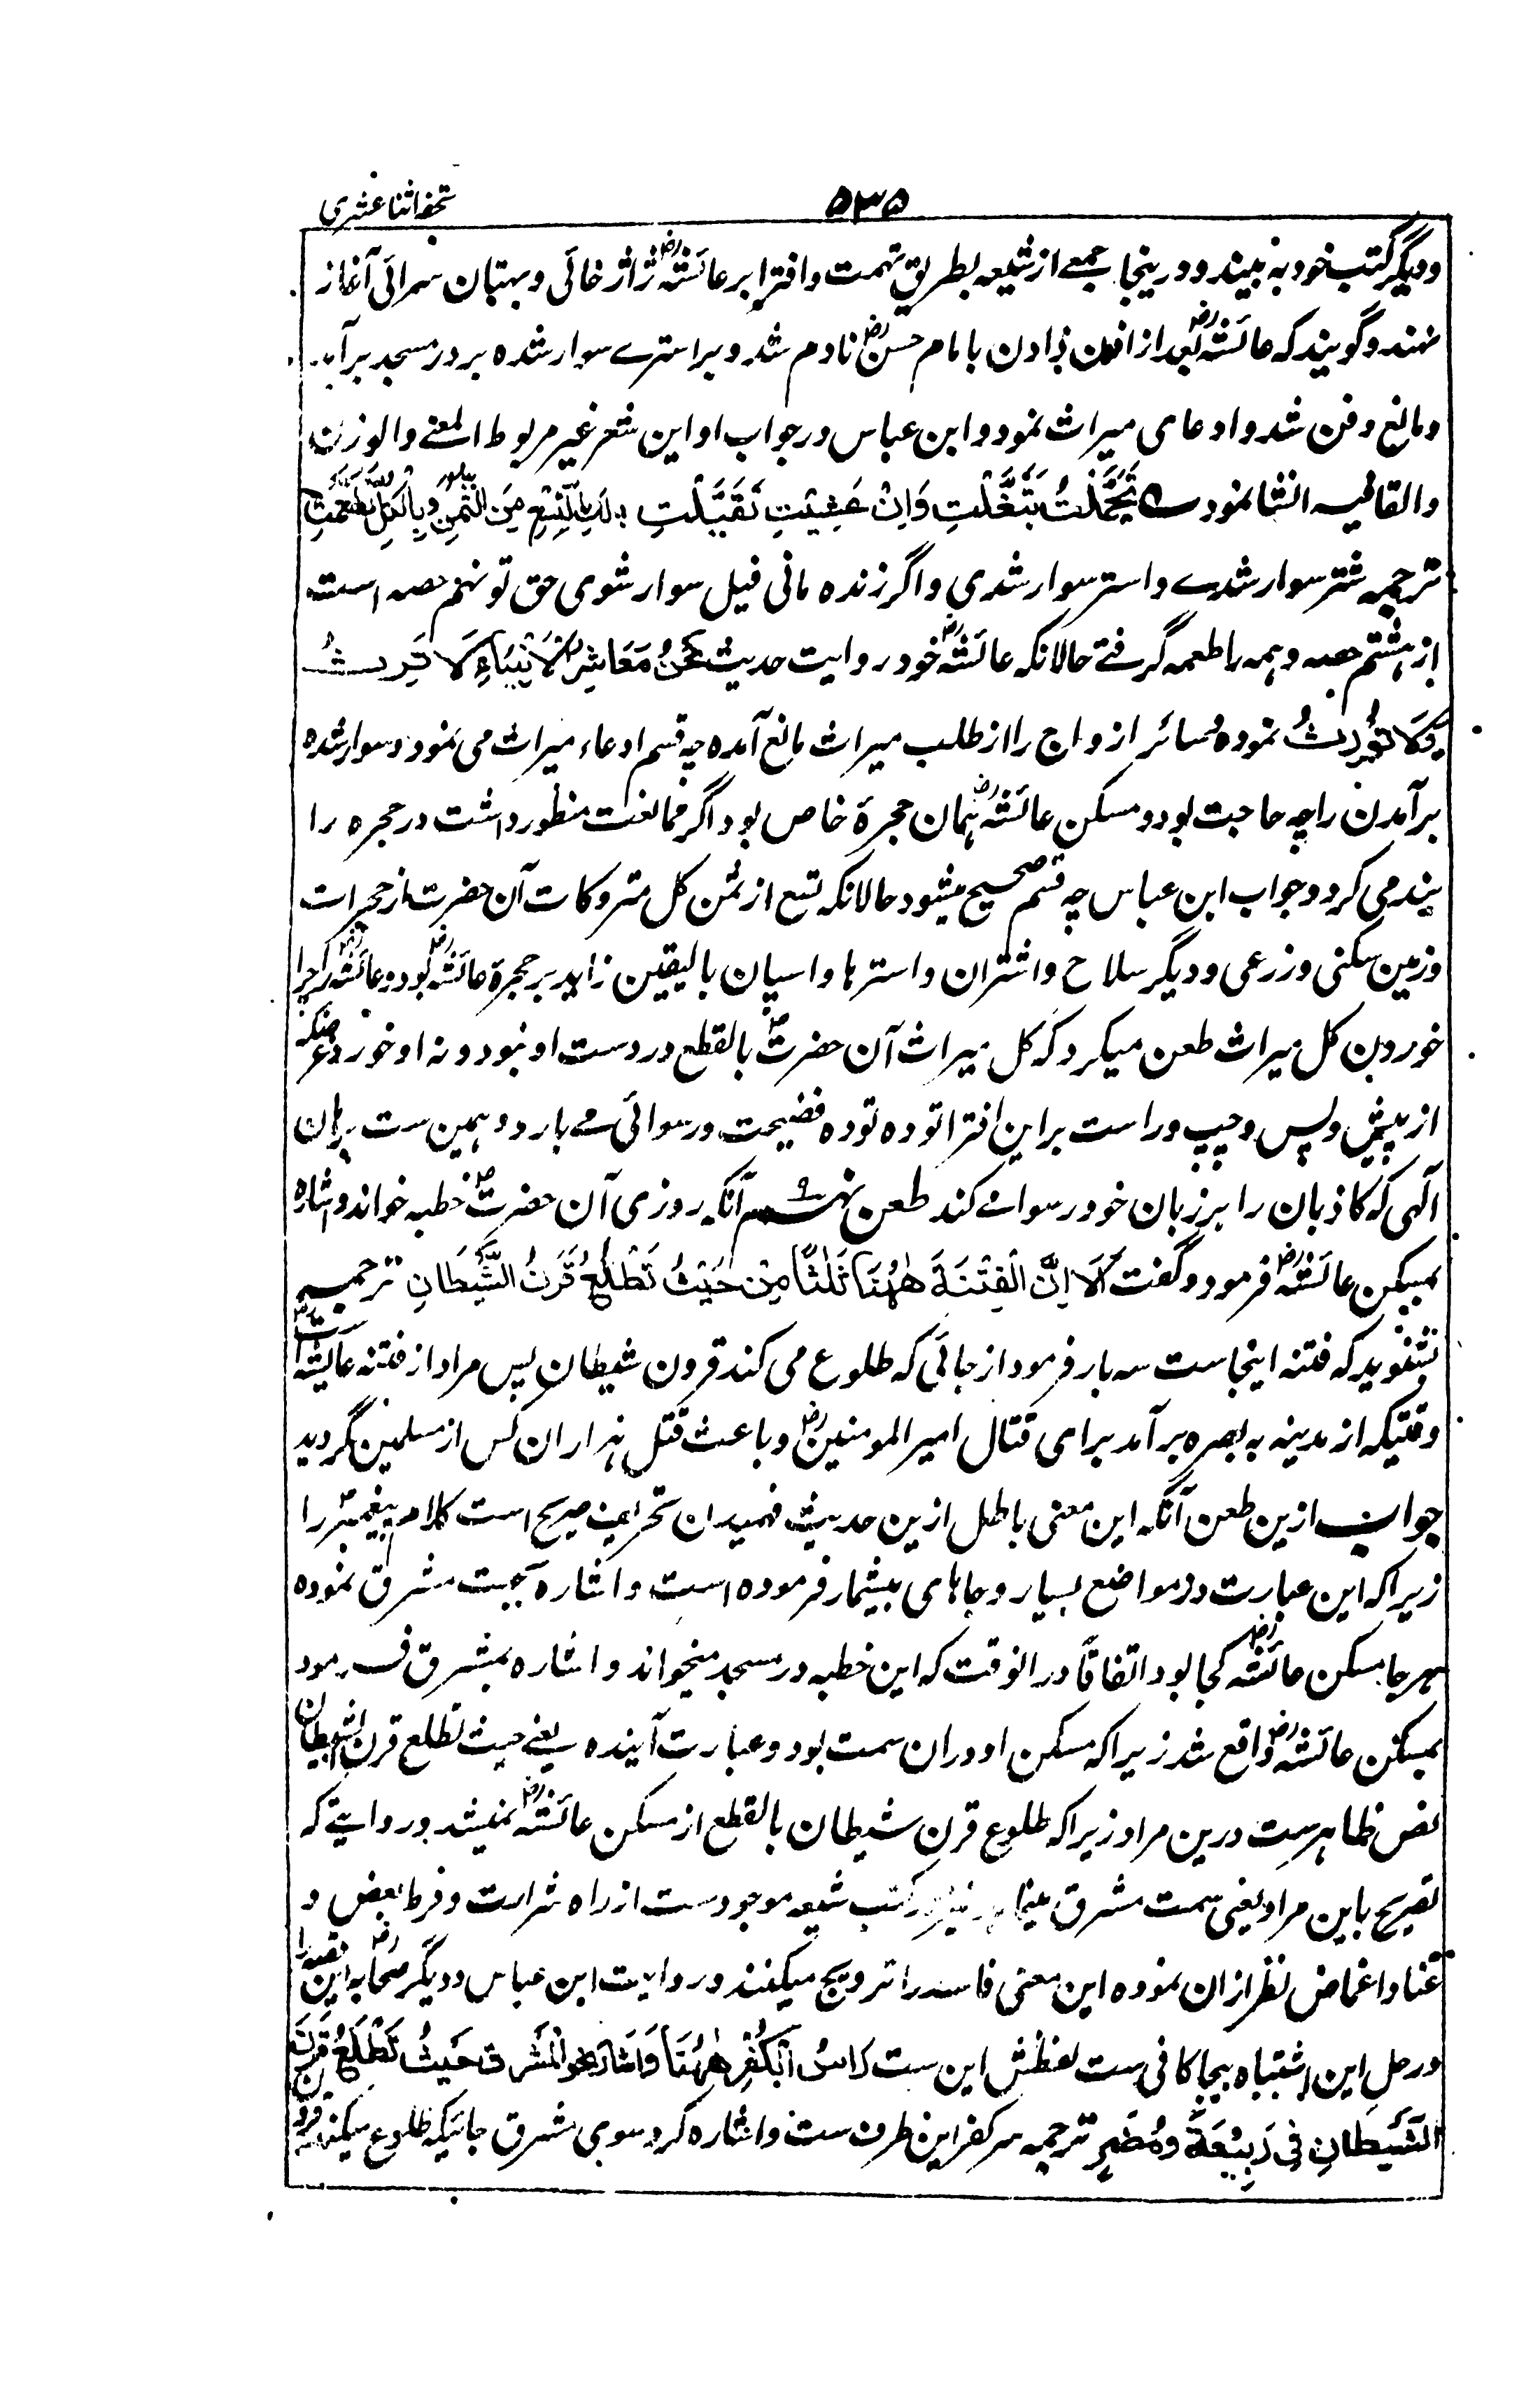 تحفه اثنا عشری
۵۳۵
ودیگر کتب خود به بیند و درینجا جمعے از شیعه بطریق تهمت وافترا بر عائشهؓ ژاژخائی و بهتان سرائی آغاز
نهند و گویند که عائشهؓ بعد از اذن دادن با امام حسنؓ نادم شد و براسترے سوار شده بر در مسجد برآمد
ومانع دفن شد وادعای میراث نمود وابن عباس در جواب او این شعر غیر مربوط المعنے والوزن
والقافیه انشا نمود تَجَمَّلْتِ تَبَغَّلْتِ وَاِنْ عِشْتِ تَفَيَّلْتِ لَكِ التُّسْعُ مِنَ الثُّمُنِ وَبِالْكُلِّ تَطَعَّمْتِ
ترجمه شتر سوار شدے واستر سوار شدی واگر زنده مانی فیل سوار شوی حق تو نهم حصه است
از هشتم حصه وهمه را طعمه گرفتے حالانکه عائشهؓ خود روایت حدیث نَحْنُ مَعَاشِرُ الْاَنْبِيَاءِ لَا نَرِثُ
وَلَا نُوْرِثُ نموده سائر ازواج را از طلب میراث مانع آمده چه قسم ادعاء میراث می نمود وسوار شده
برآمدن را چه حاجت بود ومسکن عائشهؓ همان حجرهٔ خاص بود اگر ممانعت منظور داشت در حجره را
بند می کرد وجواب ابن عباس چه قسم صحیح میشود حالانکه تسع از ثمن کل متروکات آن حضرت از حجرات
وزمین سکنی وزرعی ودیگر سلاح واشتران واسترها واسپان بالیقین زاید بر حجرهٔ عائشهؓ بود وعائشهؓ را چرا
خوردن کل میراث طعن میکرد که کل میراث آن حضرتؐ بالقطع در دست او نبود ونه او خورد غرضکه
از پیش وپس وچپ وراست براین افترا توده توده فضیحت ورسوائی مے بارد وهمین ست برهان
الهی که کاذبان را بر زبان خود رسوا مے کند طعن نهم آنکه روزی آن حضرتؐ خطبه خواند واشاره
بمسکن عائشهؓ فرمود وگفت اَلَا اِنَّ الْفِتْنَةَ هٰهُنَا ثَلٰثًا مِنْ حَيْثُ تَطْلُعُ قَرْنُ الشَّيْطَانِ ترجمه
بشنوید که فتنه اینجاست سه بار فرمود از جائی که طلوع می کند قرون شیطان پس مراد از فتنه عایشهؓ است
وقتیکه از مدینه به بصره برآمد برای قتال امیر المومنینؓ وباعث قتل هزاران کس از مسلمین گردید
جواب ازین طعن آنکه این معنی باطل ازین حدیث فهمیدن تحریف صریح است کلام پیغمبرؐ را
زیراکه این عبارت در مواضع بسیار وجاهای بیشمار فرموده است واشاره بجهت مشرق نموده
هرجا مسکن عائشهؓ کجا بود اتفاقاً درانوقت که این خطبه در مسجد میخواند واشاره بمشرق فرمود
بمسکن عائشهؓ واقع شد زیراکه مسکن او دران سمت بود وعبارت آینده یعنے حیث تطلع قرن الشیطان
نص ظاهرست درین مراد زیراکه طلوع قرن شیطان بالقطع از مسکن عائشهؓ نمیشد ور وایتے که
تصریح باین مراد یعنی سمت مشرق مینماید نیز در کتب شیعه موجودست از راه شرارت وفرط بغض و
عناد اغماض نظر ازان نموده این معنی فاسد را ترویج میکنند وروایت ابن عباس ودیگر صحابهؓ این قصه را
در حل این اشتباه بیجا کافی ست لفظش این ست رَاسُ الْكُفْرِ هٰهُنَا وَاَشَارَ نَحْوَ الْمَشْرِقِ حَيْثُ تَطْلُعُ قَرْنُ
الشَّيْطَانِ فِى رَبِيْعَةَ وَمُضَرٍ ترجمه سر کفر این طرف ست واشاره کرد سوی مشرق جائیکه طلوع میکند قرون